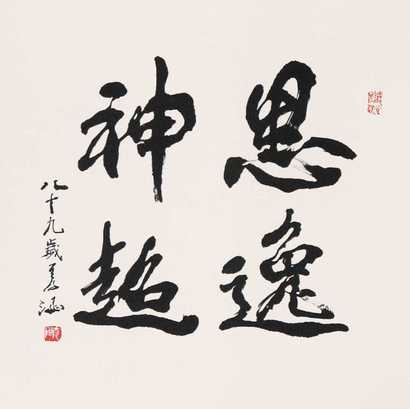 思逸
神超
八十九岁